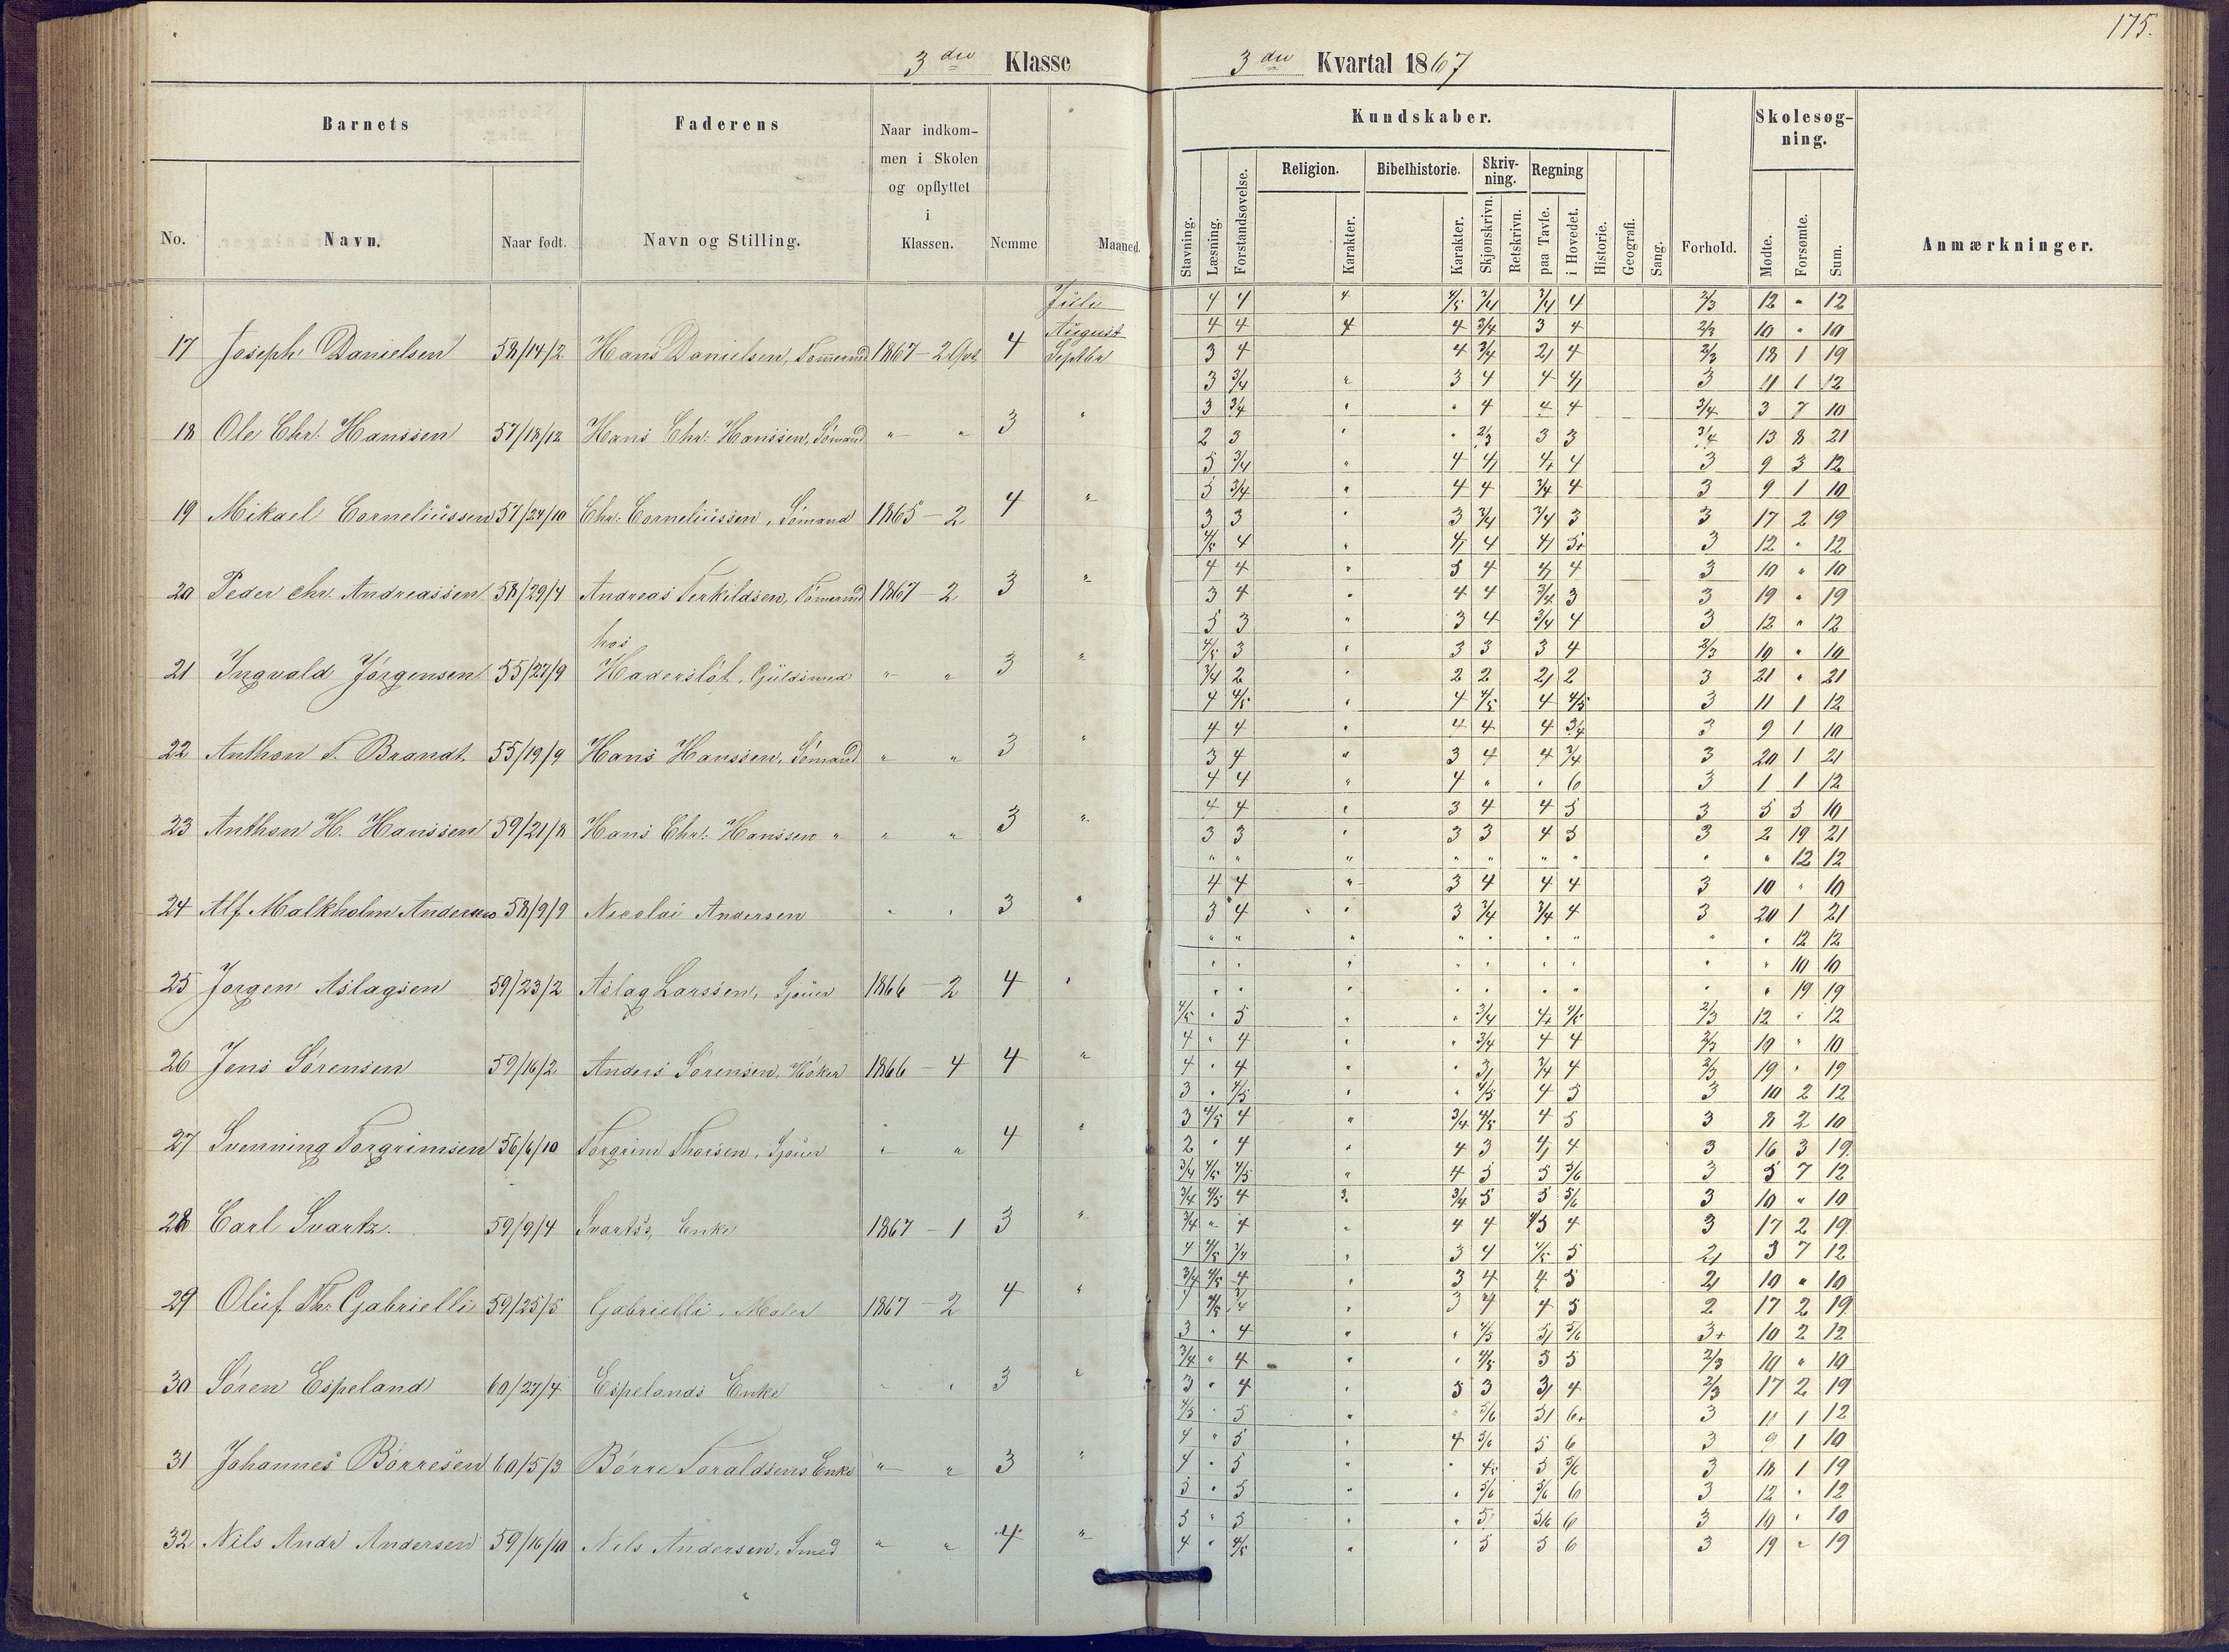 175.
3die Klasse 3die Kvartal 1867
Barnets Faderens Naar indkommen i Skolen og opflyttet i Klassen. Nemme Maaned. Kundskaber. Forhold. Skolesøgning. Anmærkninger.
No. Navn. Naar født. Navn og Stilling.
Stavning. Læsning. Forstandsøvelse. Religion. Karakter. Bibelhistorie. Karakter. Skrivning. Skjønskrivn. Retskrivn. Regning paa Tavle. i Hovedet. Historie. Geografi. Sang. Mødte. Forsømte. Sum.
Juli 4 4 4 4/5 3/4 3/4 4 2/3 12 " 12
August 4 4 4 4 3/4 3 4 2/3 10 " 10
17 Joseph Danielsen 58/14/2 Hans Danielsen, Tømmermd 1867 - 2 Qvt 4 Septbr 3 4 4 3/4 4 2/3 18 1 19
3 3/4 " 3 4 4 3 11 1 12
3 3/4 " " 4 4 4 3/4 3 7 10
18 Ole Chr. Hanssen 57/18/12 Hans Chr. Hanssen, Sömand " " 3 " 2 3 " " 2/3 3 3 3/4 13 8 21
5 3/4 " 4 4 3 9 3 12
5 3/4 " 4 4 3/4 4 3 9 1 10
19 Mikael Corneliussen 57/24/10 Chr. Corneliussen, Sömand 1865 - 2 4 " 3 3 " 3 3/4 3/4 3 3 17 2 19
4/5 4 " 4 3 12 " 12
4 4 " 5 4 4 3 10 " 10
20 Peder Chr. Andreassen 58/29/4 Andreas Terkildsen, Tömermd 1867 - 2 3 " 3 4 " 4 4 3/4 3 3 19 " 19
5 3 " 3 4 3/4 4 3 12 " 12
hos
4/5 3 " 3 3 3 4 2/3 10 " 10
21 Ingvald Jörgensen 55/27/9 Haderslöt, Guldsmed " " 3 " 3/4 2 " 2 2 2 3 21 " 21
4 4/5 " 4 4/5 4 4/5 3 11 1 12
4 4 " 4 4 4 3/4 3 9 1 10
22 Anthon T. Brandt 55/19/9 Hans Hanssen, Sömand " " 3 " 3 4 " 3 4 4 3/4 3 20 1 21
4 4 " 4 " " 6 3 1 1 12
4 4 " 3 4 4 5 3 5 5 10
23 Anthon H. Hanssen 59/21/8 Hans Chr. Hanssen " " " 3 " 3 3 " 3 3 4 5 3 2 19 21
" " " " " " " " " 12 12
4 4 " 3 4 4 4 3 10 " 10
24 Alf Malkholm Andersen 58/9/9 Nicolai Andersen " " 3 " 3 4 " 3 3/4 3/4 4 3 20 1 21
" " " " " " " " " 12 12
" " " " " " " " " 10 10
25 Jorgen Aslagsen 59/23/2 Aslag Larssen, Sjouer 1866 - 2 4 " " " " " " " " " " 19 19
4/5 " 5 " " 3/4 4+ 4/5 2/3 12 " 12
4 " 4 " " 3/4 4 4 2/3 10 " 10
26 Jens Sörensen 59/16/2 Anders Sörensen, Höker 1866 - 4 4 " 4 " 4 " " 3/4 4 2/3 19 " 19
3 " 4/5 " " 4/5 4 5 3 10 2 12
3 4/5 4 " 3/4 4/5 4 5 3 8 2 10
27 Svenning Torgrimsen 56/6/10 Torgrim Thorsen, Sjouer " " 4 " 2 " 4 " 4 3 4 3 16 3 19
3/4 4/5 4/5 " 4 5 5 5/6 3 5 7 12
3/4 4/5 4 3. 3/4 5 5 5/6 3 10 " 10
28 Carl Svartz. 59/9/4 Svartz's, Enke 1867 - 1 3 " 3/4 " 4 " 4 4 4/5 4 3 17 2 19
4 4/5 3/4 " 3 4 4/5 5 5 7 12
3/4 4/5 4 " 3 4 4 5 10 " 10
29 Oluf Thr. Gabrielli 59/25/5 Gabrielli, Maler 1867 - 2 4 " 4/5 3/4 " 3 4 4 5 2 17 2 19
3 " 4 " " 4/5 5/6 3+ 10 2 12
3/4 " 4 " " 4/5 5 5 2/3 10 " 10
30 Sören Espeland 60/27/4 Espelands Enke " " 3 " 3 " 4 " 5 3 4 2/3 17 2 19
4/5 " 5 " " 5/6 6+ 3 11 1 12
4 " 5 " 4 5/6 5 6 3 9 1 10
31 Johannes Börresen 60/5/3 Börre Toraldsens Enke " " 3 " 4 " 5 " " 4/5 5 5/6 3 18 1 19
5 " 5 " " 5/6 5/6 6 3 12 " 12
5 " 5 " " 5 5/6 6 3 10 " 10
32 Nils Andr Andersen 59/16/10 Nils Andersen, Smed " " 4 " 4 " 4/5 " " 5 5 6 3 19 " 19